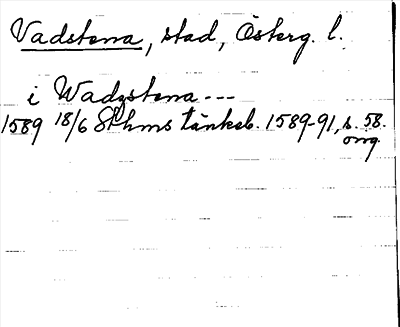 Vadstena, stad, Österg. l.
i Wadzstena ---
1589 18/6 Sthms tänkeb. 1589-91, s. 58.
omg.